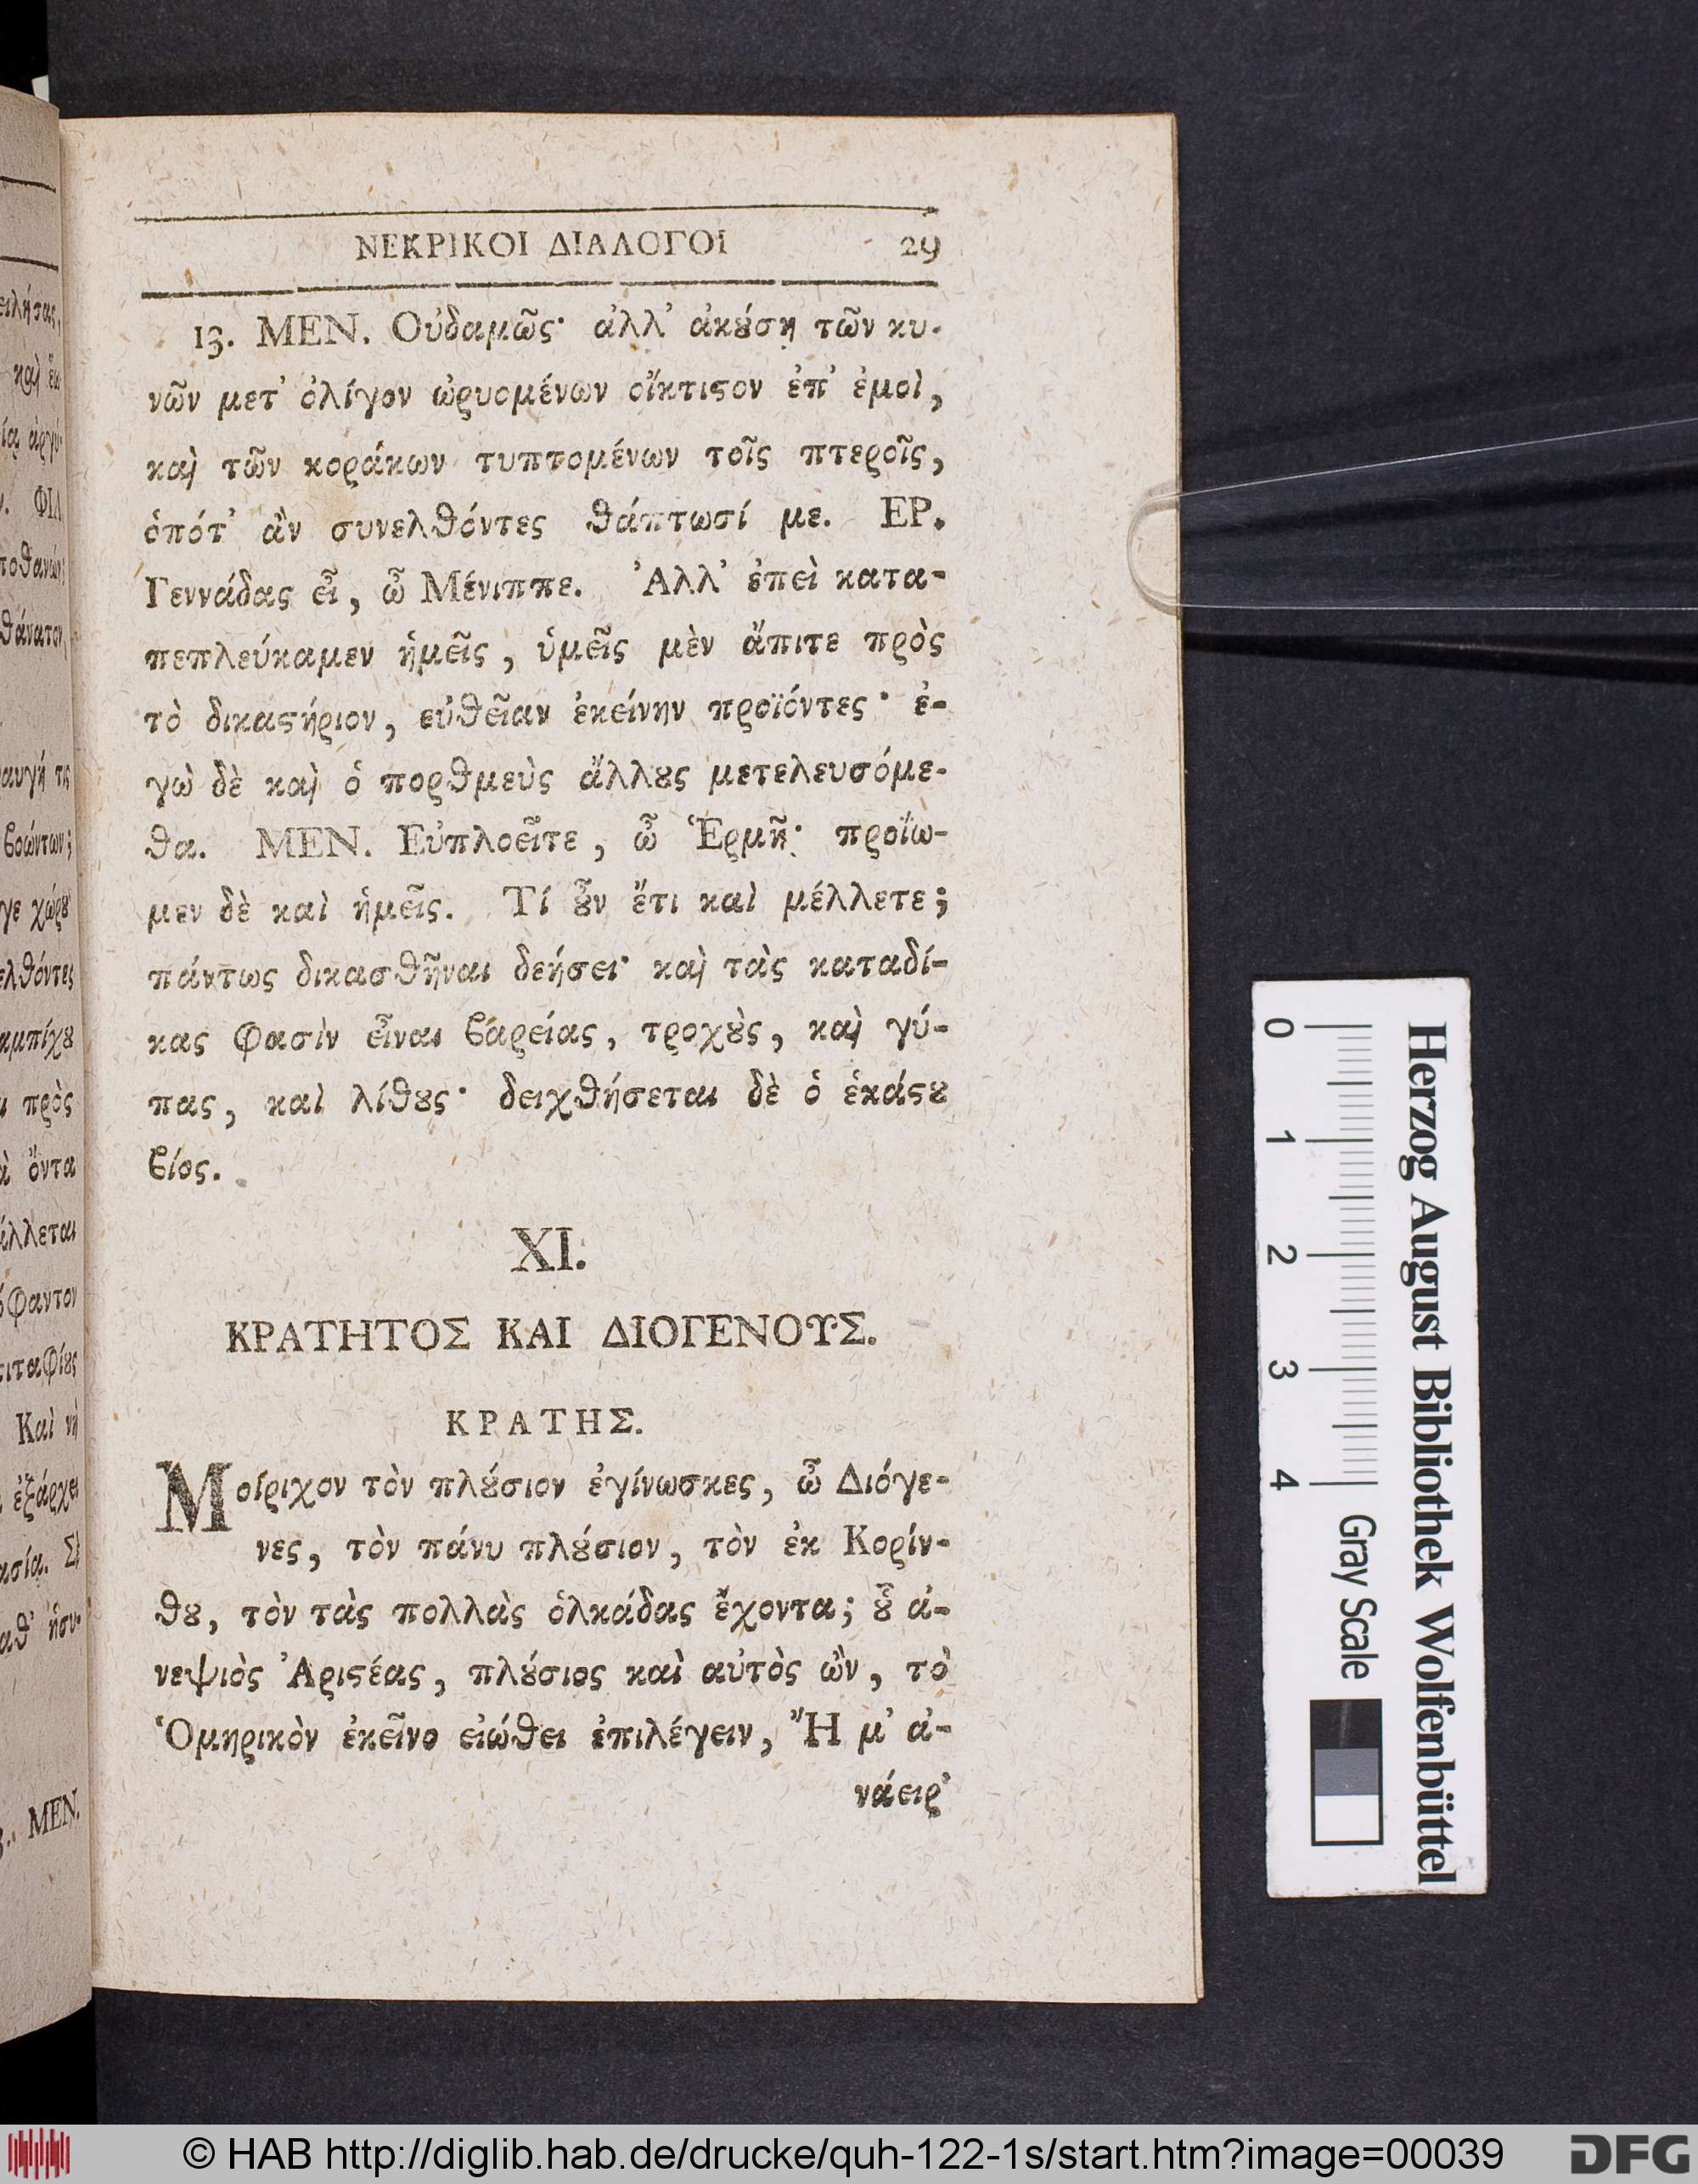 ΝΕΚΡΙΚΟΙ ΔΙΑΛΟΓΟΙ 29
13. ΜΕΝ. Οὐδαμῶς· ἀλλ' ἀκȣ́σῃ τῶν κυ-
νῶν μετ' ὀλίγον ὠρυομένων οἴκτιϛον ἐπ' ἐμοὶ,
καὶ τῶν κοράκων τυπτομένων τοῖς πτεροῖς,
ὁπότ' ἂν συνελθόντες θάπτωσί με. ΕΡ.
Γεννάδας εἶ, ὦ Μένιππε. Ἀλλ' ἐπεὶ κατα-
πεπλεύκαμεν ἡμεῖς, ὑμεῖς μὲν ἄπιτε πρὸς
τὸ δικαϛήριον, εὐθεῖαν ἐκείνην προϊόντες· ἐ-
γὼ δὲ καὶ ὁ πορθμεὺς ἄλλȣς μετελευσόμε-
θα. ΜΕΝ. Εὐπλοεῖτε, ὦ Ἑρμῆ· προΐω-
μεν δὲ καὶ ἡμεῖς. Τί ȣ͂̓ν ἔτι καὶ μέλλετε;
πάντως δικασθῆναι δεήσει· καὶ τὰς καταδί-
κας φασὶν εἶναι βαρείας, τροχȣ̀ς, καὶ γύ-
πας, καὶ λίθȣς· δειχθήσεται δὲ ὁ ἑκάϛȣ
βίος.
XI.
ΚΡΑΤΗΤΟΣ ΚΑΙ ΔΙΟΓΕΝΟΥΣ.
ΚΡΑΤΗΣ.
Μοίριχον τὸν πλȣ́σιον ἐγίνωσκες, ὦ Διόγε-
νες, τὸν πάνυ πλȣ́σιον, τὸν ἐκ Κορίν-
θȣ, τὸν τὰς πολλὰς ὁλκάδας ἔχοντα; ȣ͂̔ ἀ-
νεψιὸς Ἀριϛέας, πλȣ́σιος καὶ αὐτὸς ὢν, τὸ
Ὁμηρικὸν ἐκεῖνο εἰώθει ἐπιλέγειν, Ἤ μ' ἀ-
νάειρ'
Herzog August Bibliothek Wolfenbüttel
0 1 2 3 4 Gray Scale
© HAB http://diglib.hab.de/drucke/quh-122-1s/start.htm?image=00039
DFG